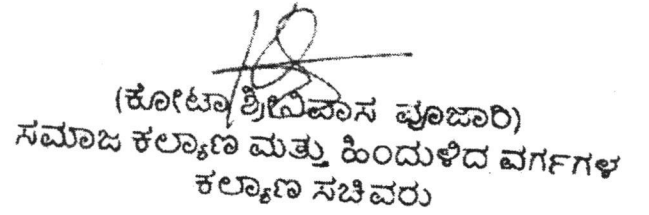 (ಕೋಟಾ ಶ್ರೀನಿವಾಸ ಪೂಜಾರಿ)
ಸಮಾಜ ಕಲ್ಯಾಣ ಮತ್ತು ಹಿಂದುಳಿದ ವರ್ಗಗಳ
ಕಲ್ಯಾಣ ಸಚಿವರು